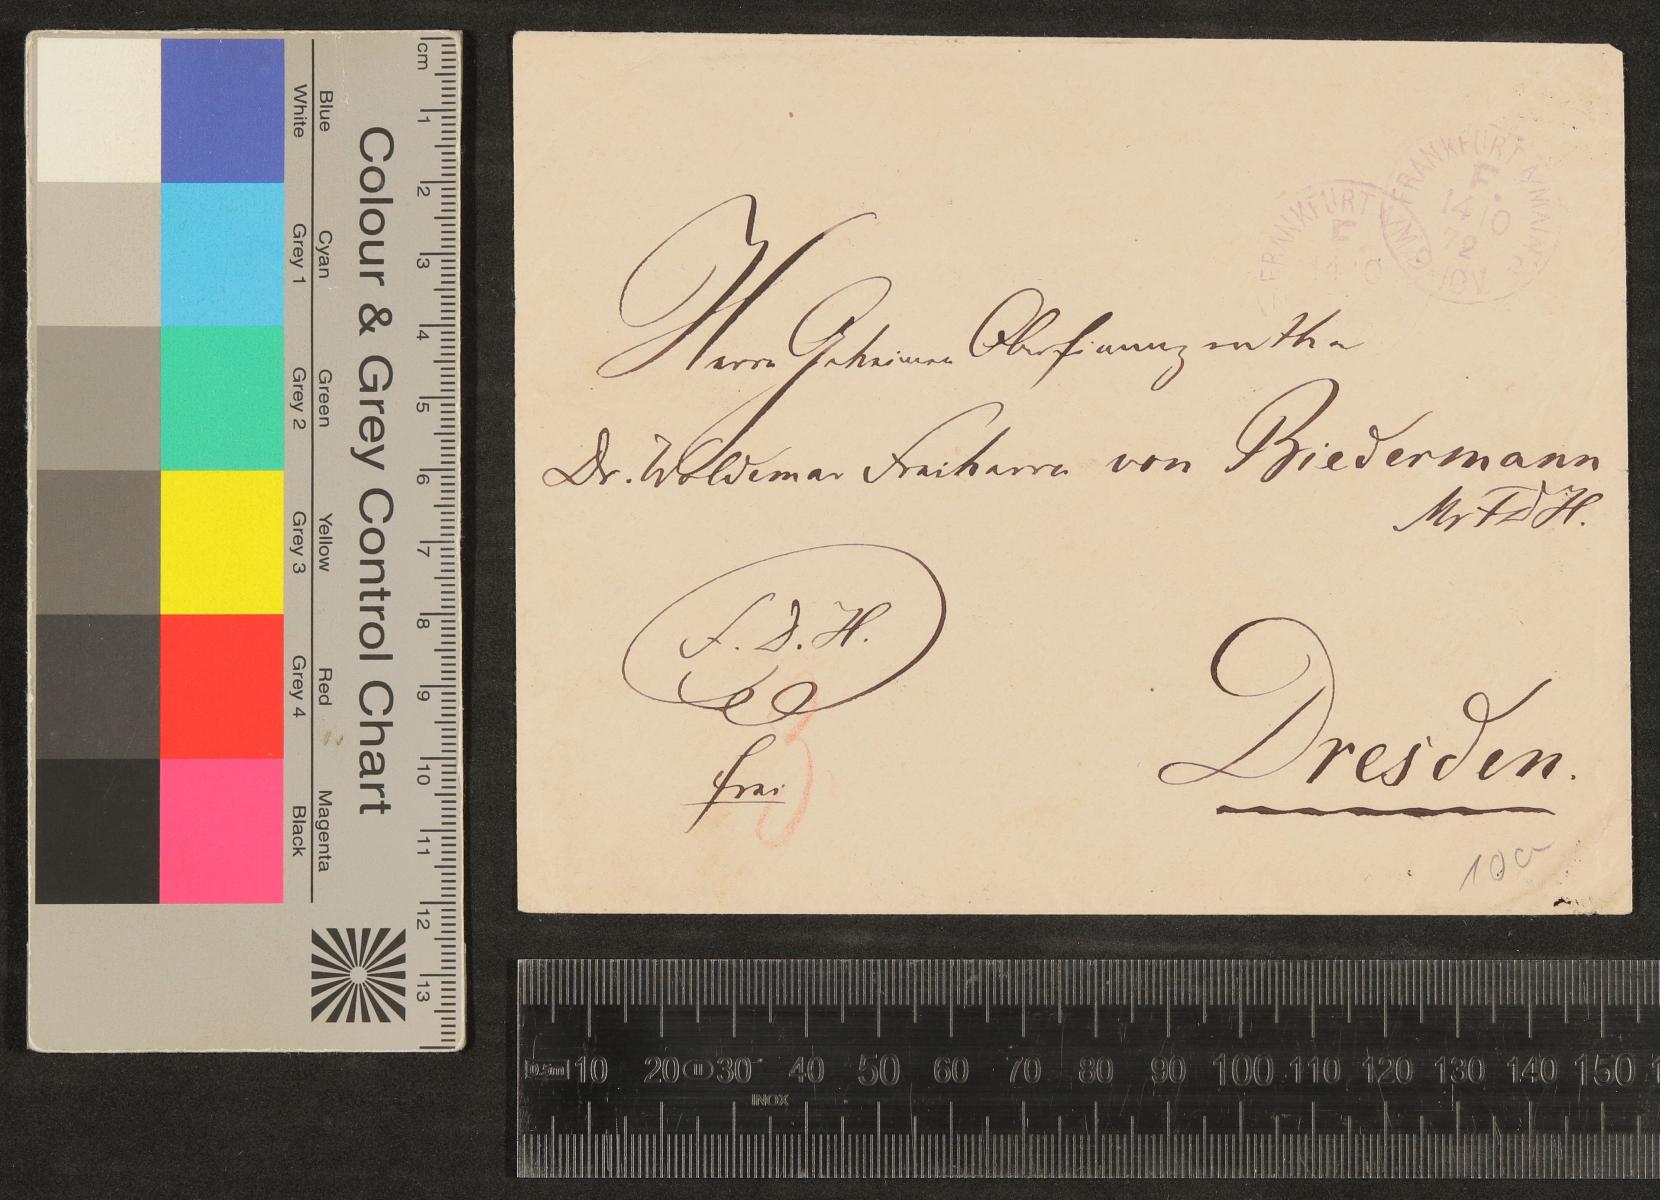 Colour & Grey Control Chart
Blue Cyan Green Yellow Red Magenta
White Grey 1 Grey 2 Grey 3 Grey 4 Black
cm 1 2 3 4 5 6 7 8 9 10 11 12 13
FRANKFURT A/MAIN
F.
14 10
72
10V
FRANKFURT
F.
14 10
Herrn Geheimen Oberfinanzrathe
Dr. Woldemar Freiherrn von Biedermann
MrFDH.
F. D. H.
frei
3
Dresden.
10a
0.5m 10 20 30 40 50 60 70 80 90 100 110 120 130 140 150
INOX